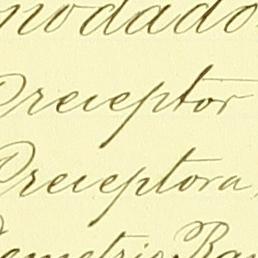 modado
Preceptor
Preceptora,
Demetrio Ra